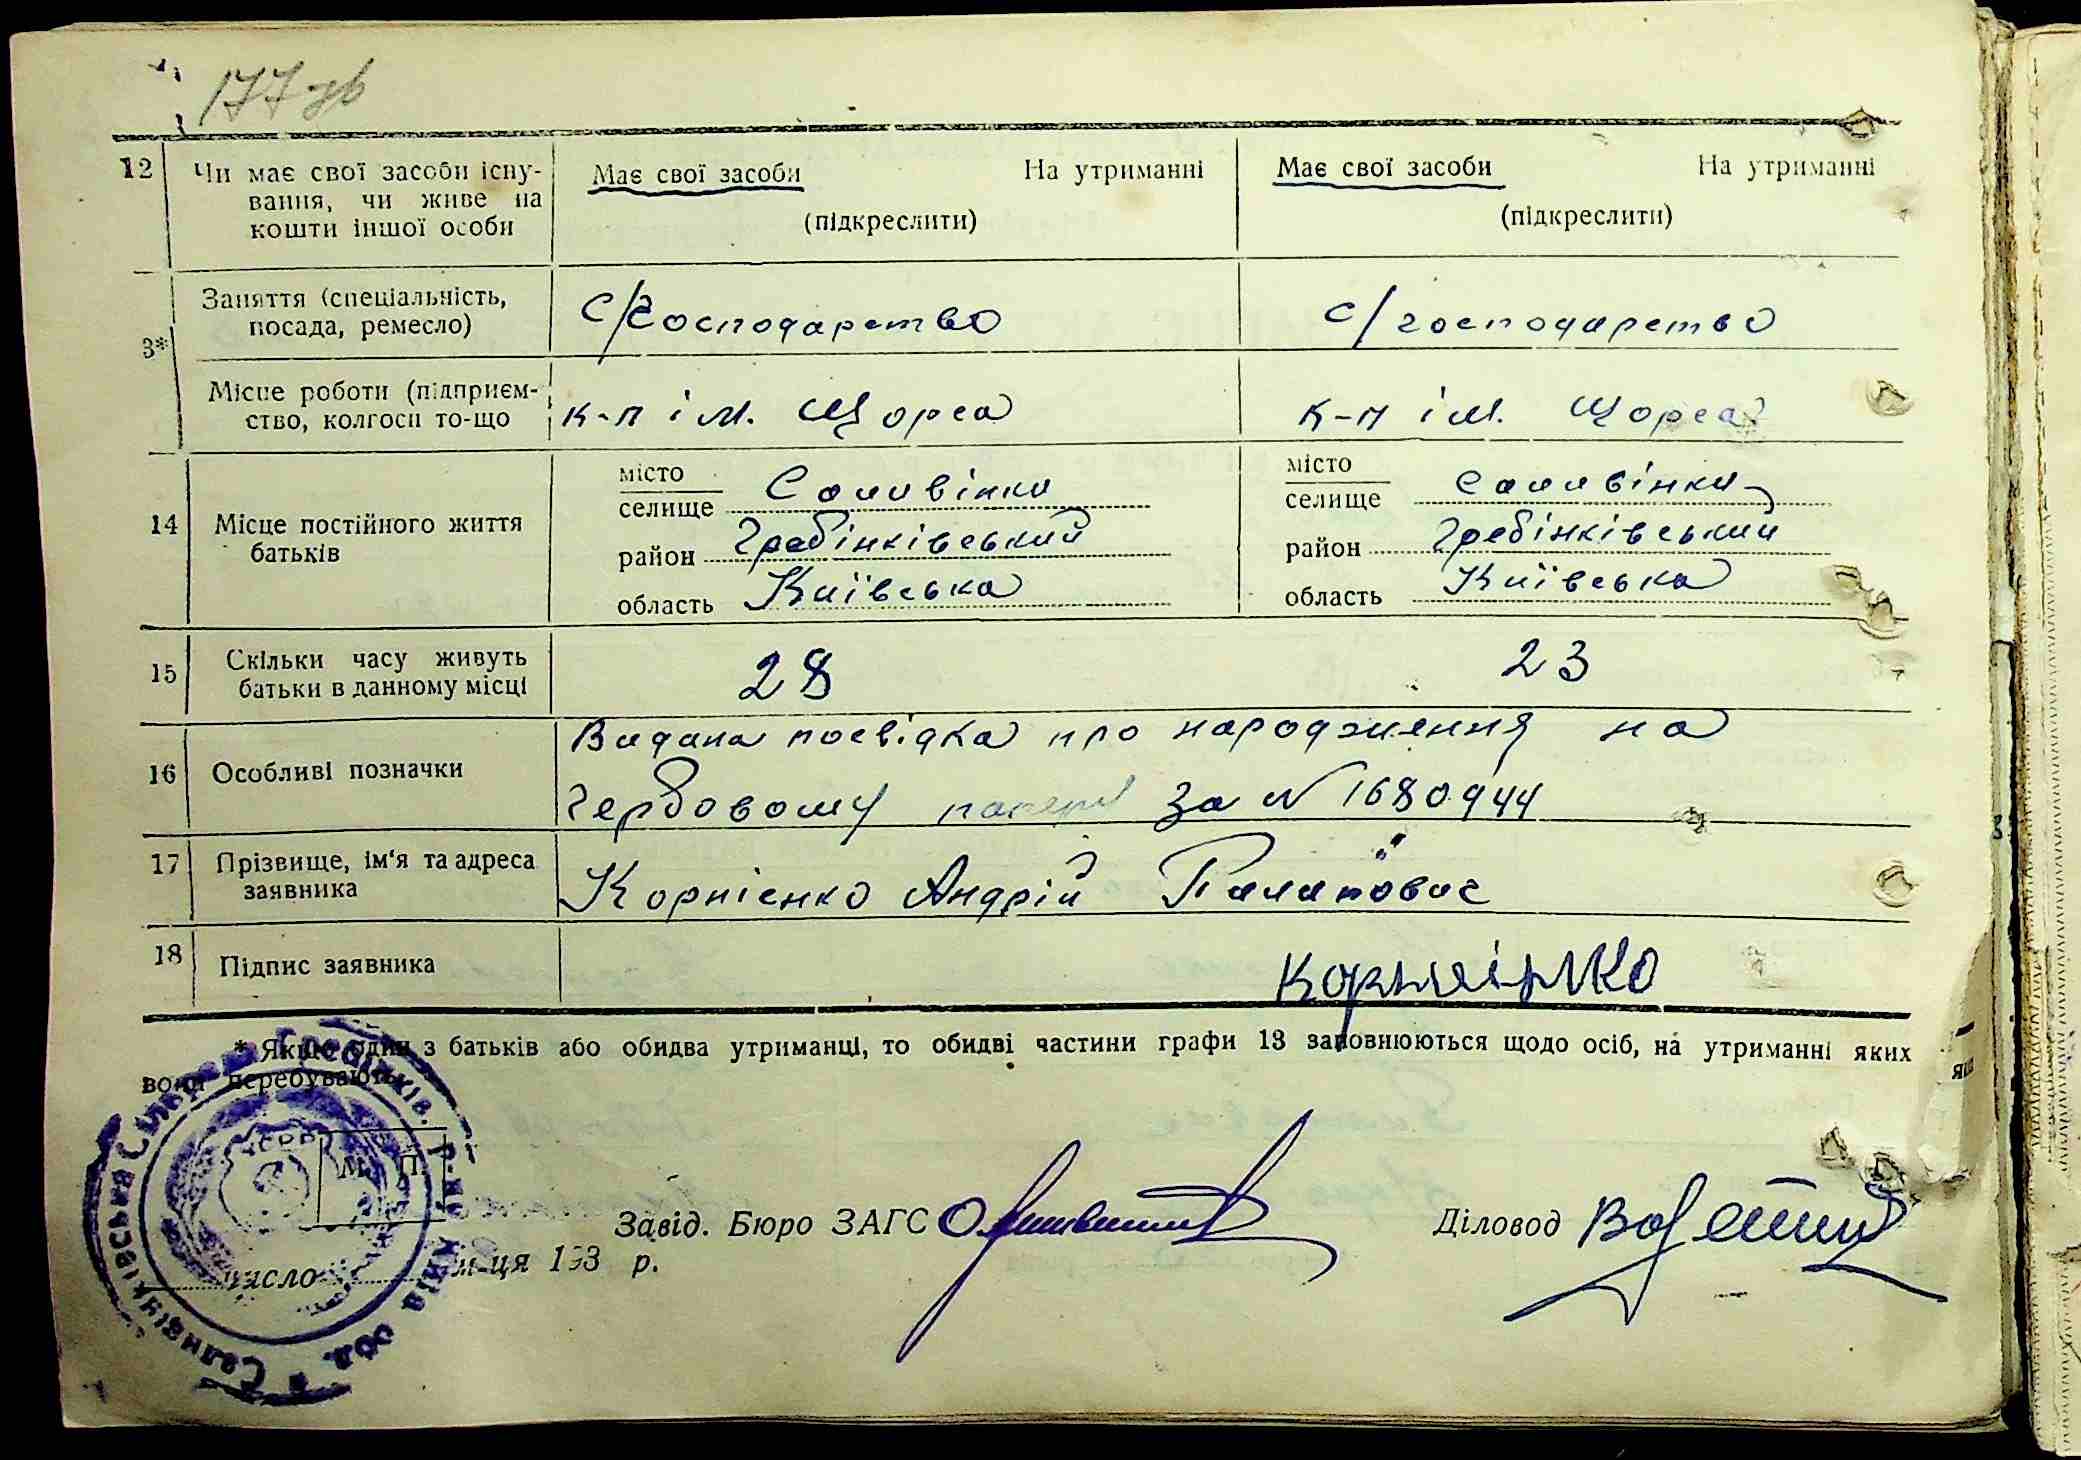 177 зв
12 Чи має свої засоби існу- Має свої засоби На утриманні Має свої засоби На утриманні
вання, чи живе на (підкреслити) (підкреслити)
кошти іншої особи
Заняття (спеціальність, с/господарство с/господарство
посада, ремесло)
3*
Місце роботи (підприєм- к-п ім. Щорса к-п ім. Щорса
ство, колгосп то-що
14 Місце постійного життя батьків
місто
селище Саливінки
район Гребінківський
область Київська
місто
селище Саливінки
район Гребінківський
область Київська
15 Скільки часу живуть 28 23
батьки в данному місці
16 Особливі позначки Видана посвідка про народження на
гербовому папері за № 1680944
17 Прізвище, ім'я та адреса Корнієнко Андрій
заявника
18 Підпис заявника
* Якщо один з батьків або обидва утриманці, то обидві частини графи 13 заповнюються щодо осіб, на утриманні яких
вони перебувають.
М. П.
Завід. Бюро ЗАГС Діловод
число м-ця 193 р.